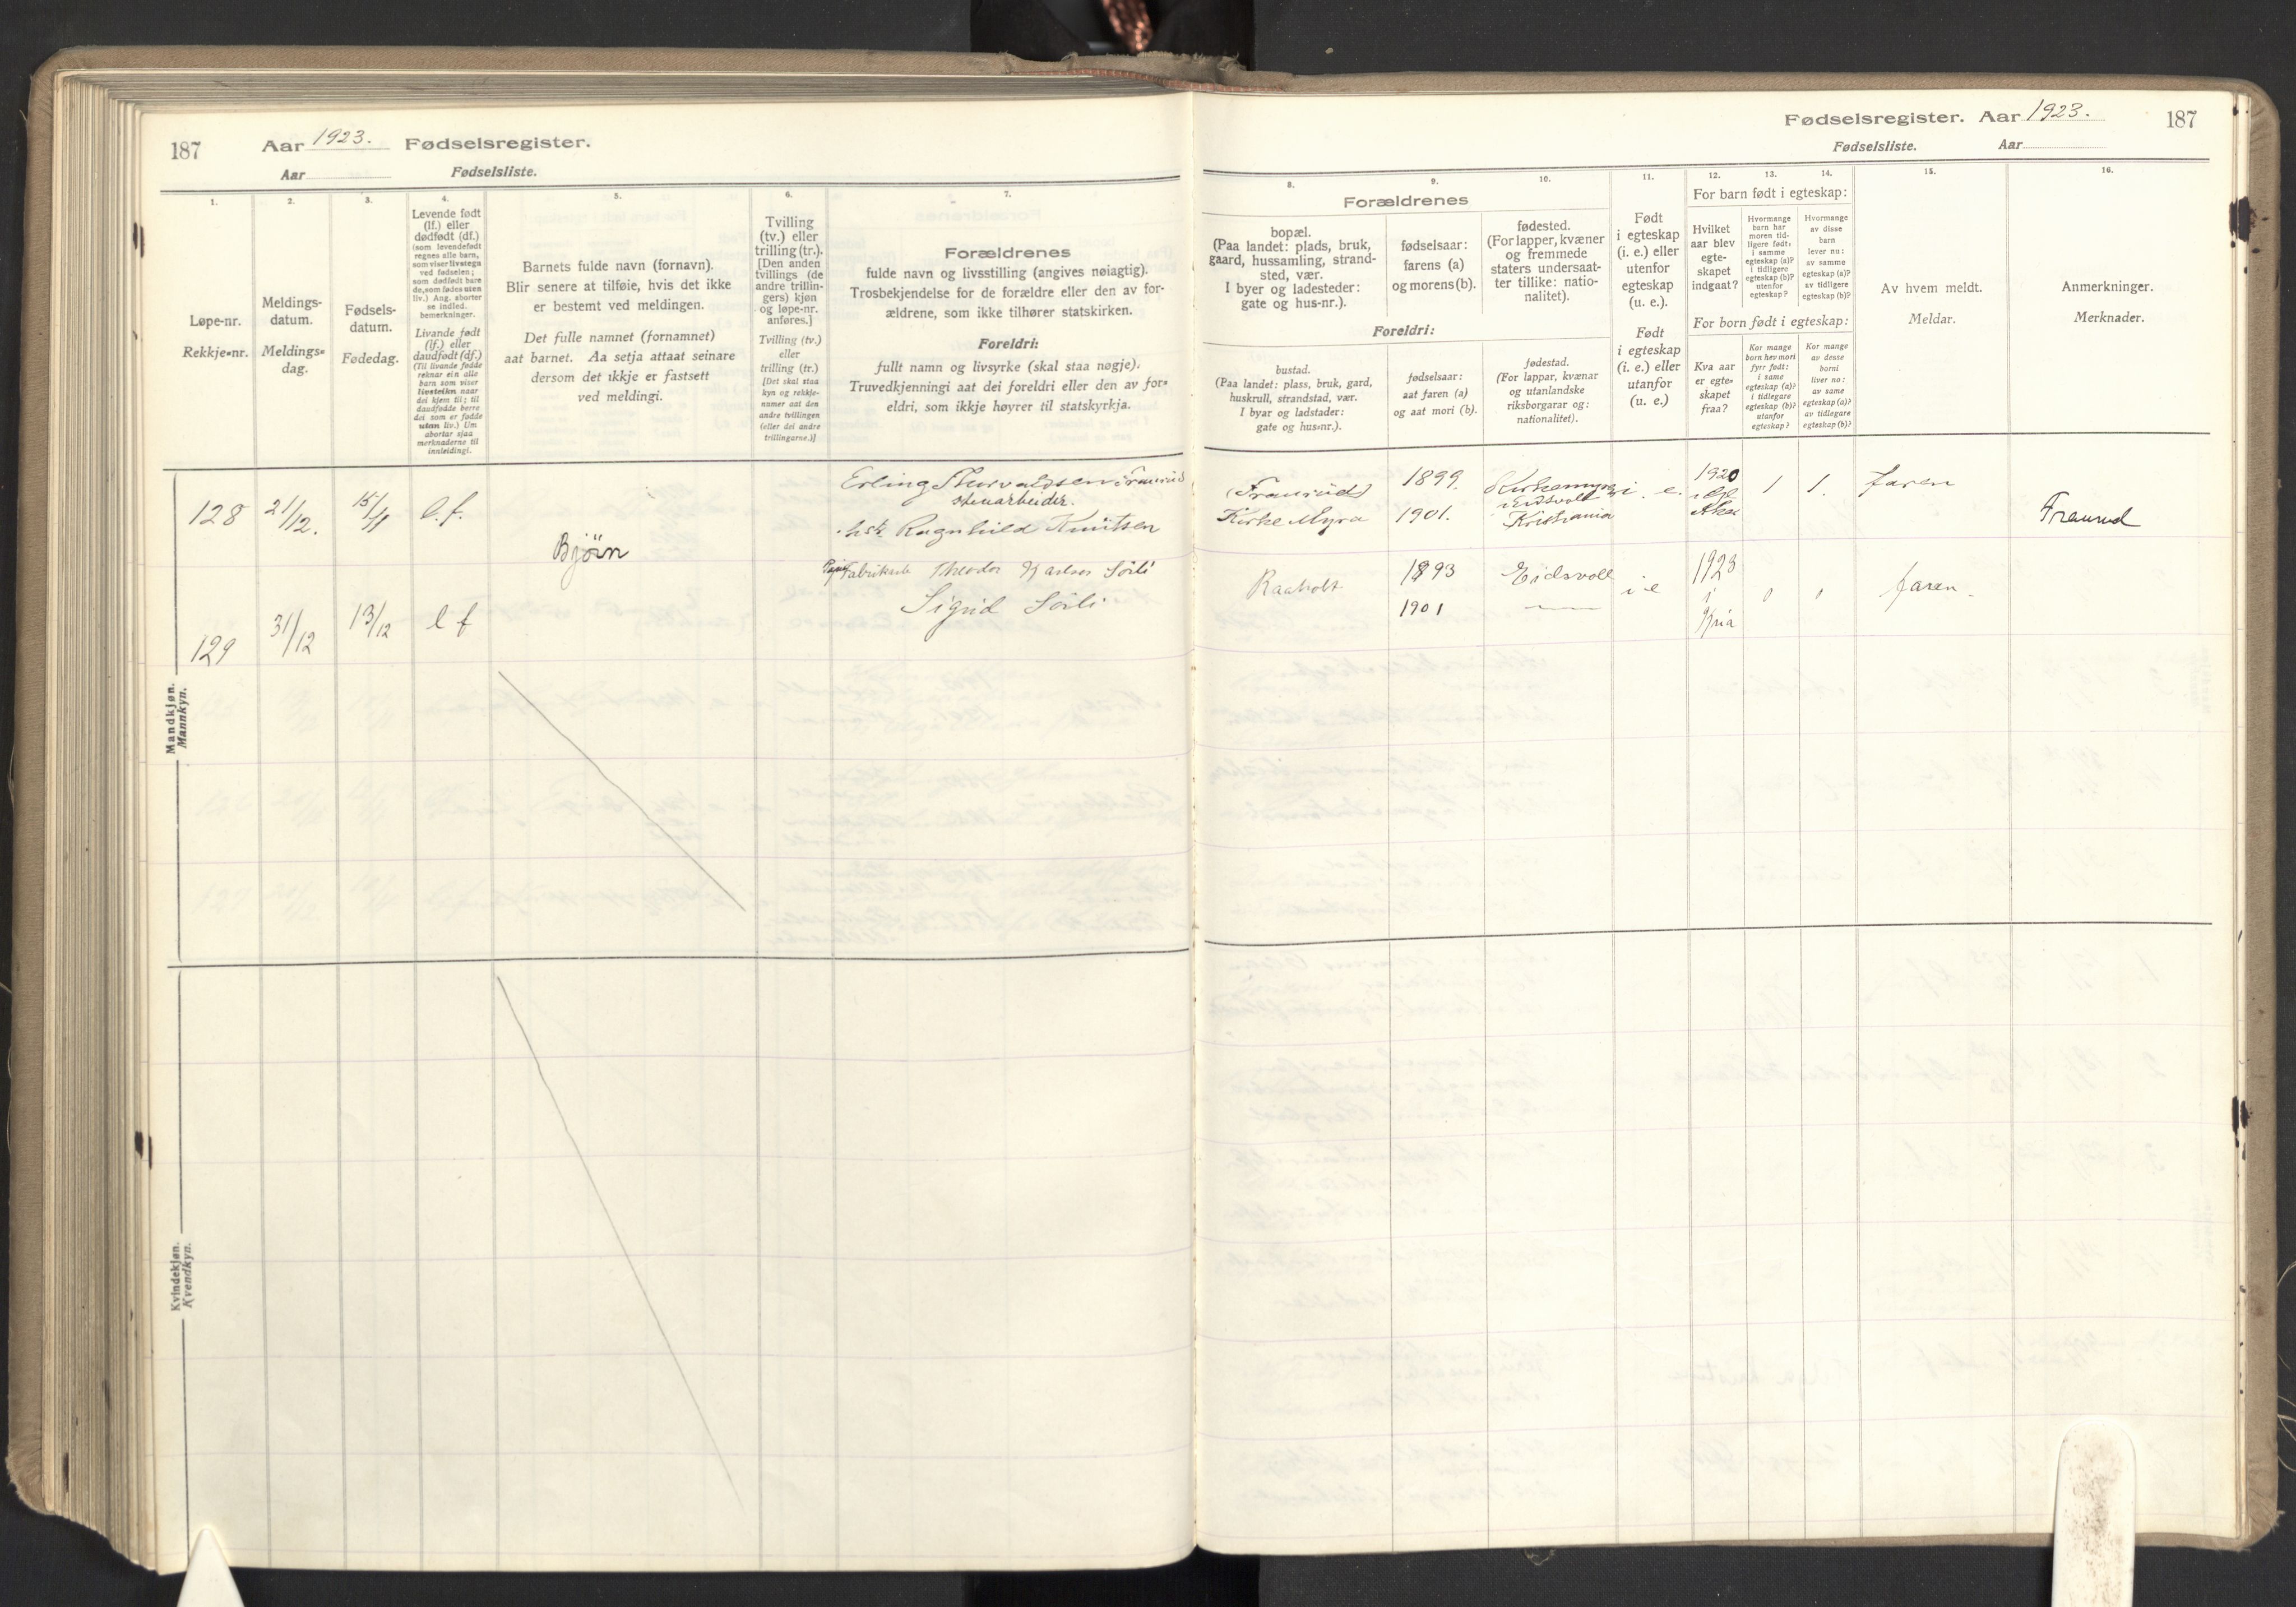 187
Aar 1923. Fødselsregister.
Aar Fødselsliste.
1.
Løpe-nr.
Rekkje-nr.
2.
Meldings-
datum.
Meldings-
dag.
3.
Fødsels-
datum.
Fødedag.
4.
Levende født
(lf.) eller
dødfødt (df.)
(som levendefødt
regnes alle barn,
som viser livstegn
ved fødselen;
som dødfødt bare
de, som fødes uten
liv.) Ang. aborter
se indled.
bemerkninger.
Livande født
(lf.) eller
daudfødt (df.)
(Til livande fødde
reknar ein alle
barn som viser
livsteikn naar
dei kjem til; til
daudfødde berre
dei som er fødde
utan liv.) Um
abortar sjaa
merknaderne til
innleidingi.
5.
Barnets fulde navn (fornavn).
Blir senere at tilføie, hvis det ikke
er bestemt ved meldingen.
Det fulle namnet (fornamnet)
aat barnet. Aa setja attaat seinare
dersom det ikkje er fastsett
ved meldingi.
6.
Tvilling
(tv.) eller
trilling (tr.).
[Den anden
tvillings (de
andre trillin-
gers) kjøn
og løpe-nr.
anføres.]
Tvilling (tv.)
eller
trilling (tr.)
[Det skal staa
kyn og rekkje-
numer aat den
andre tvillingen
(eller dei andre
trillingarne.)]
7.
Forældrenes
fulde navn og livsstilling (angives nøiagtig).
Trosbekjendelse for de forældre eller den av for-
ældrene, som ikke tilhører statskirken.
Foreldri:
fullt namn og livsyrke (skal staa nøgje).
Truvedkjenningi aat dei foreldri eller den av for-
eldri, som ikkje høyrer til statskyrkja.
Mandkjøn.
Mannkyn.
128 21/12. 15/11 l. f.
Bjørn
Erling Thorvaldsen Fraurud
stenarbeider.
Ragnhild Knutsen
129 31/12 13/12 l f
Theodor Karlsen Sörli
Sigrid Sörli
Kvindekjøn.
Kvendkyn.
Fødselsregister. Aar 1923. 187
Fødselsliste. Aar
8.
Forældrenes
bopæl.
(Paa landet: plads, bruk,
gaard, hussamling, strand-
sted, vær.
I byer og ladesteder:
gate og hus-nr.).
Foreldri:
bustad.
(Paa landet: plass, bruk, gard,
huskrull, strandstad, vær.
I byar og ladstader:
gate og hus-nr.).
9.
fødselsaar:
farens (a)
og morens (b).
fødselsaar:
aat faren (a)
og aat mori (b).
10.
fødested.
(For lapper, kvæner
og fremmede
staters undersaat-
ter tillike: natio-
nalitet).
fødestad.
(For lappar, kvænar
og utanlandske
riksborgarar og:
nationalitet).
11.
Født
i egteskap
(i. e.) eller
utenfor
egteskap
(u. e.).
Født
i egteskap
(i. e.) eller
utanfor
(u. e.)
12. 13. 14.
For barn født i egteskap:
Hvilket
aar blev
egte-
skapet
indgaat?
Hvormange
barn har
moren tid-
ligere født:
i samme
egteskap (a)?
i tidligere
egteskap (b)?
utenfor
egteskap?
Hvormange
av disse
barn
lever nu:
av samme
egteskap (a)?
av tidligere
egteskap (b)?
For born født i egteskap:
Kva aar
er egte-
skapet
fraa?
Kor mange
born hev mori
fyrr født:
i same
egteskap (a)?
i tidlegare
egteskap (b)?
utanfor
egteskap?
Kor mange
av desse
borni
liver no:
av same
egteskap (a)?
av tidlegare
egteskap (b)?
15.
Av hvem meldt.
Meldar.
16.
Anmerkninger.
Merknader.
(Fraurud)
Kirke Myra
1899.
1901.
Kirkemyra
i Eidsvoll
Kristiania
i. e.
1920
1 1. faren
Fraurud
Raaholt
1893
1901
Eidsvoll
i e
1923
i
Kria
0 0 faren.